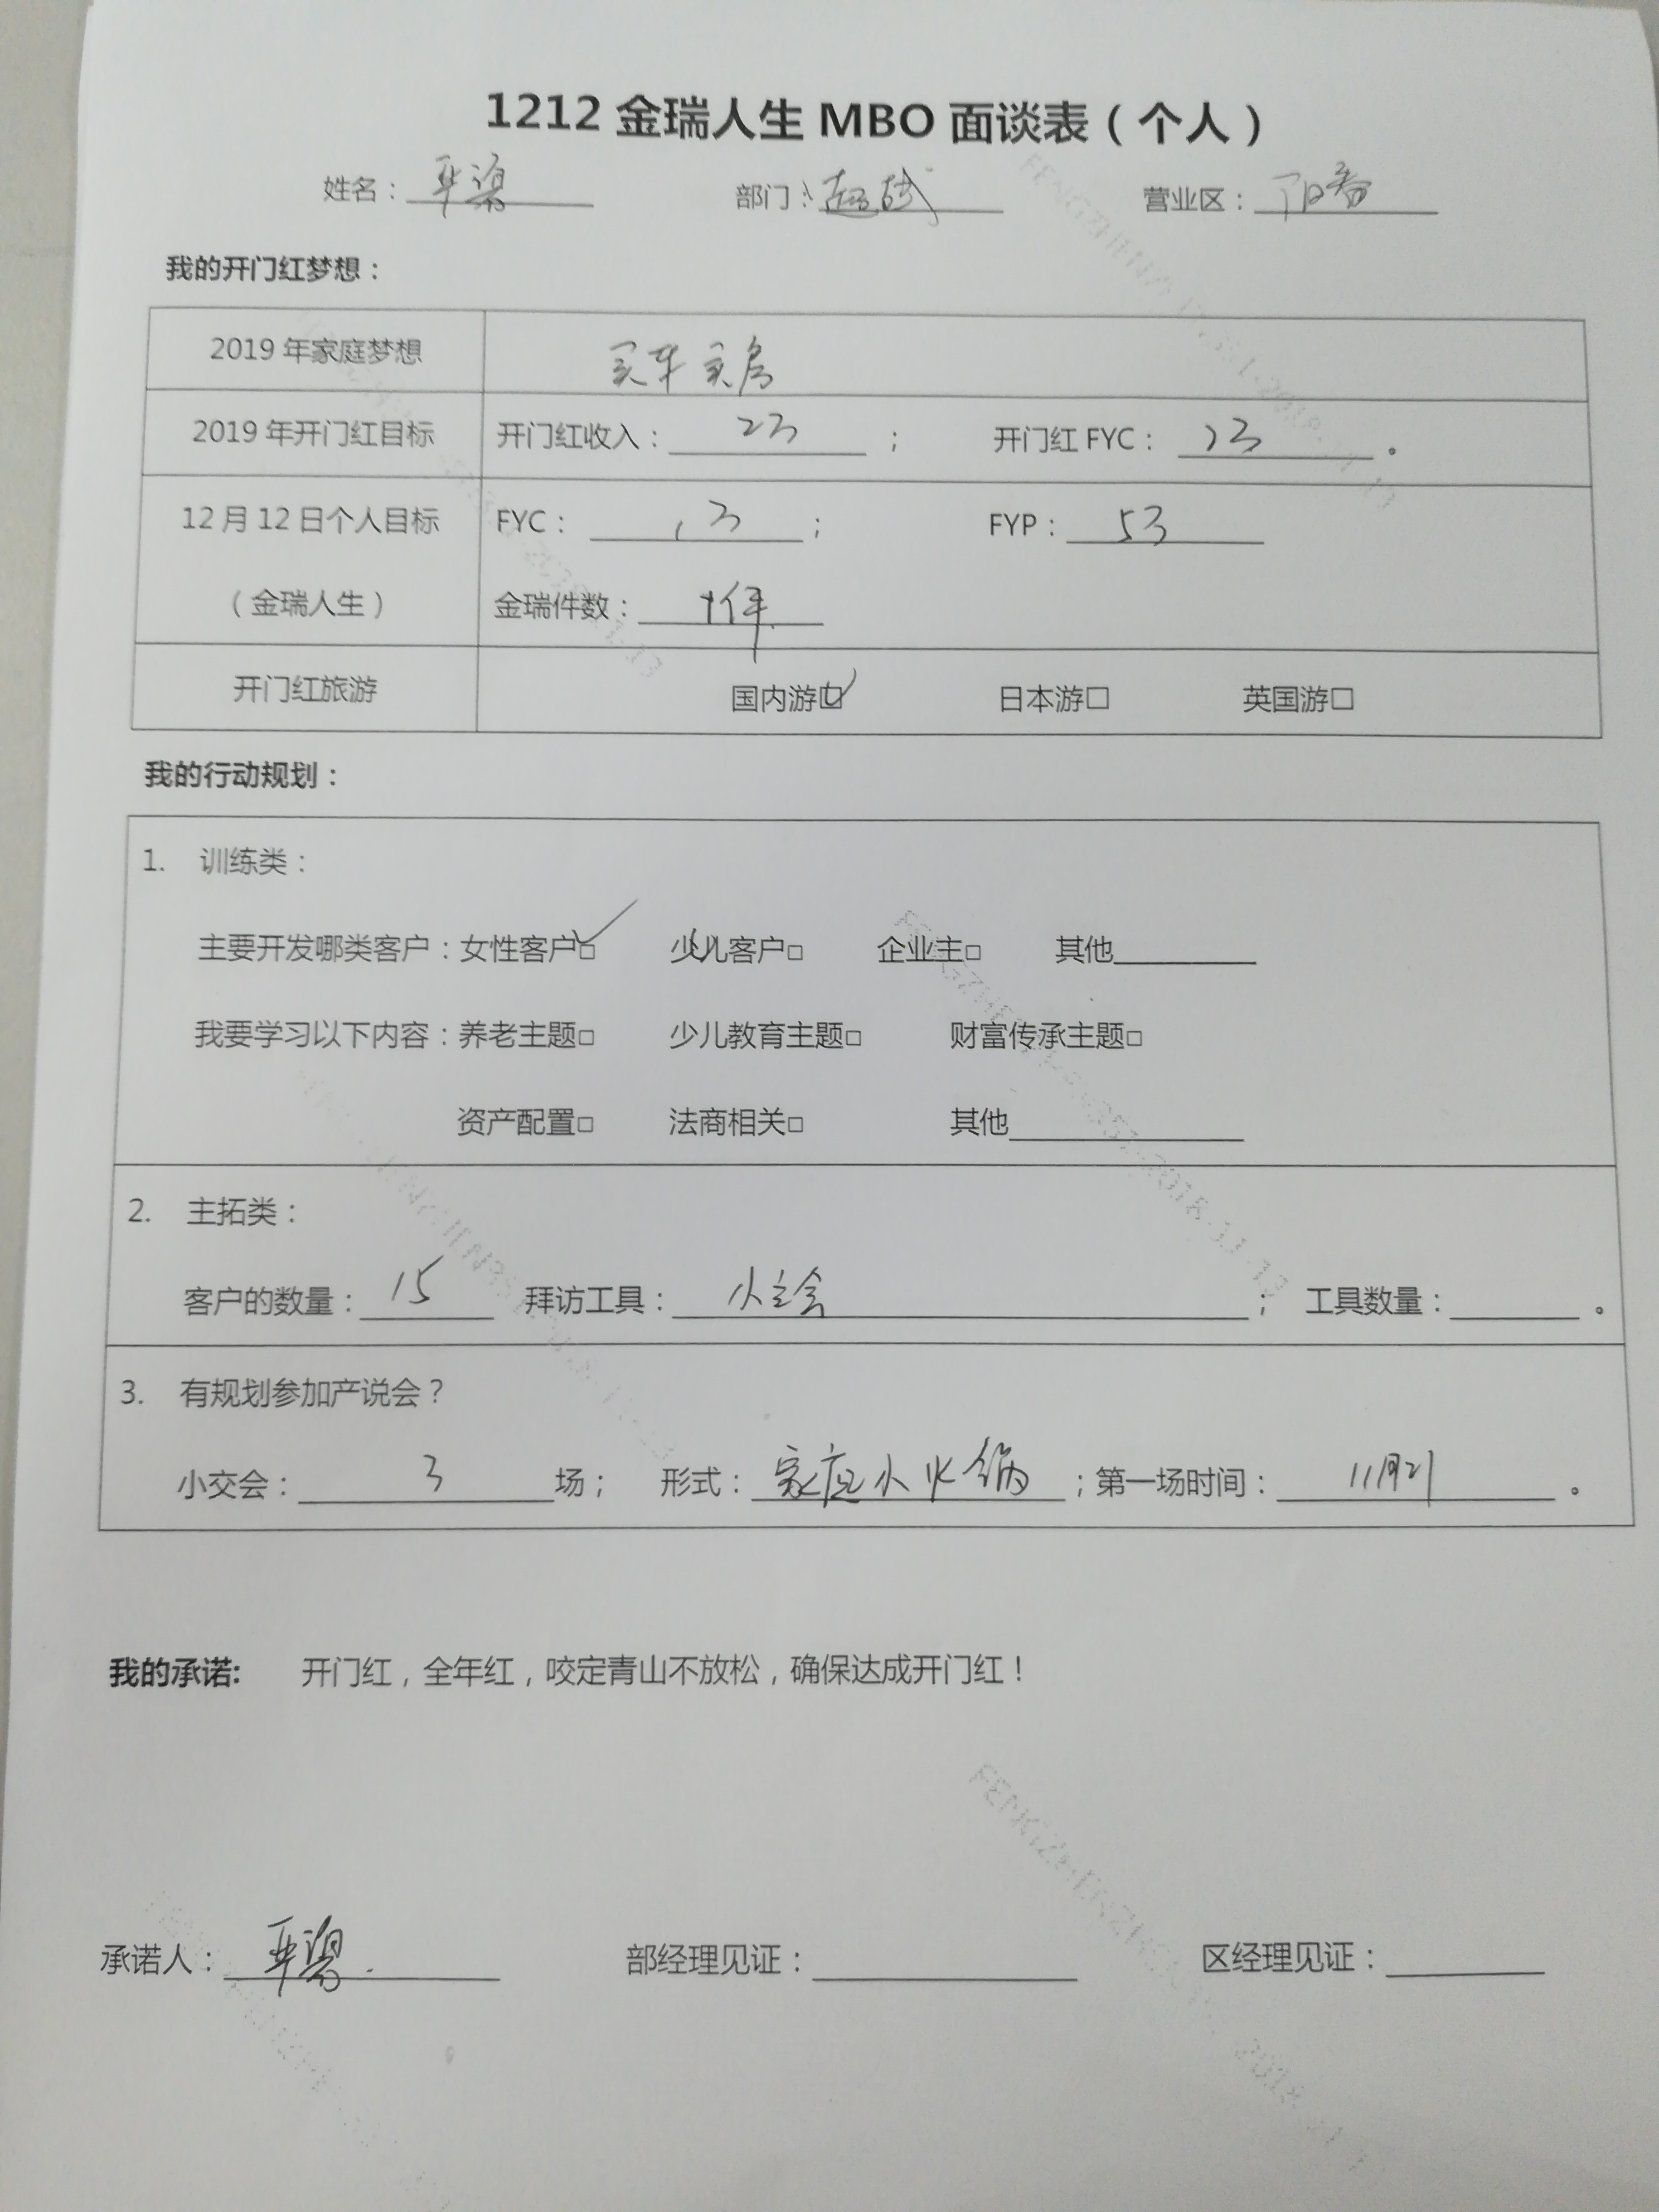 1212 金瑞人生 MBO 面谈表（个人）
姓名： 部门： 营业区：
我的开门红梦想：
2019 年家庭梦想 买车买房
2019 年开门红目标 开门红收入：2万 ； 开门红 FYC： 。
12 月 12 日个人目标 FYC： ； FYP：5万
（金瑞人生） 金瑞件数：十件
开门红旅游 国内游☑ 日本游□ 英国游□
我的行动规划：
1. 训练类：
主要开发哪类客户：女性客户□✓ 少儿客户□ 企业主□ 其他
我要学习以下内容：养老主题□ 少儿教育主题□ 财富传承主题□
资产配置□ 法商相关□ 其他
2. 主拓类：
客户的数量：15 拜访工具： ； 工具数量： 。
3. 有规划参加产说会？
小交会：3 场； 形式：家庭小火锅 ；第一场时间：11月21 。
我的承诺: 开门红，全年红，咬定青山不放松，确保达成开门红！
承诺人： 部经理见证： 区经理见证：